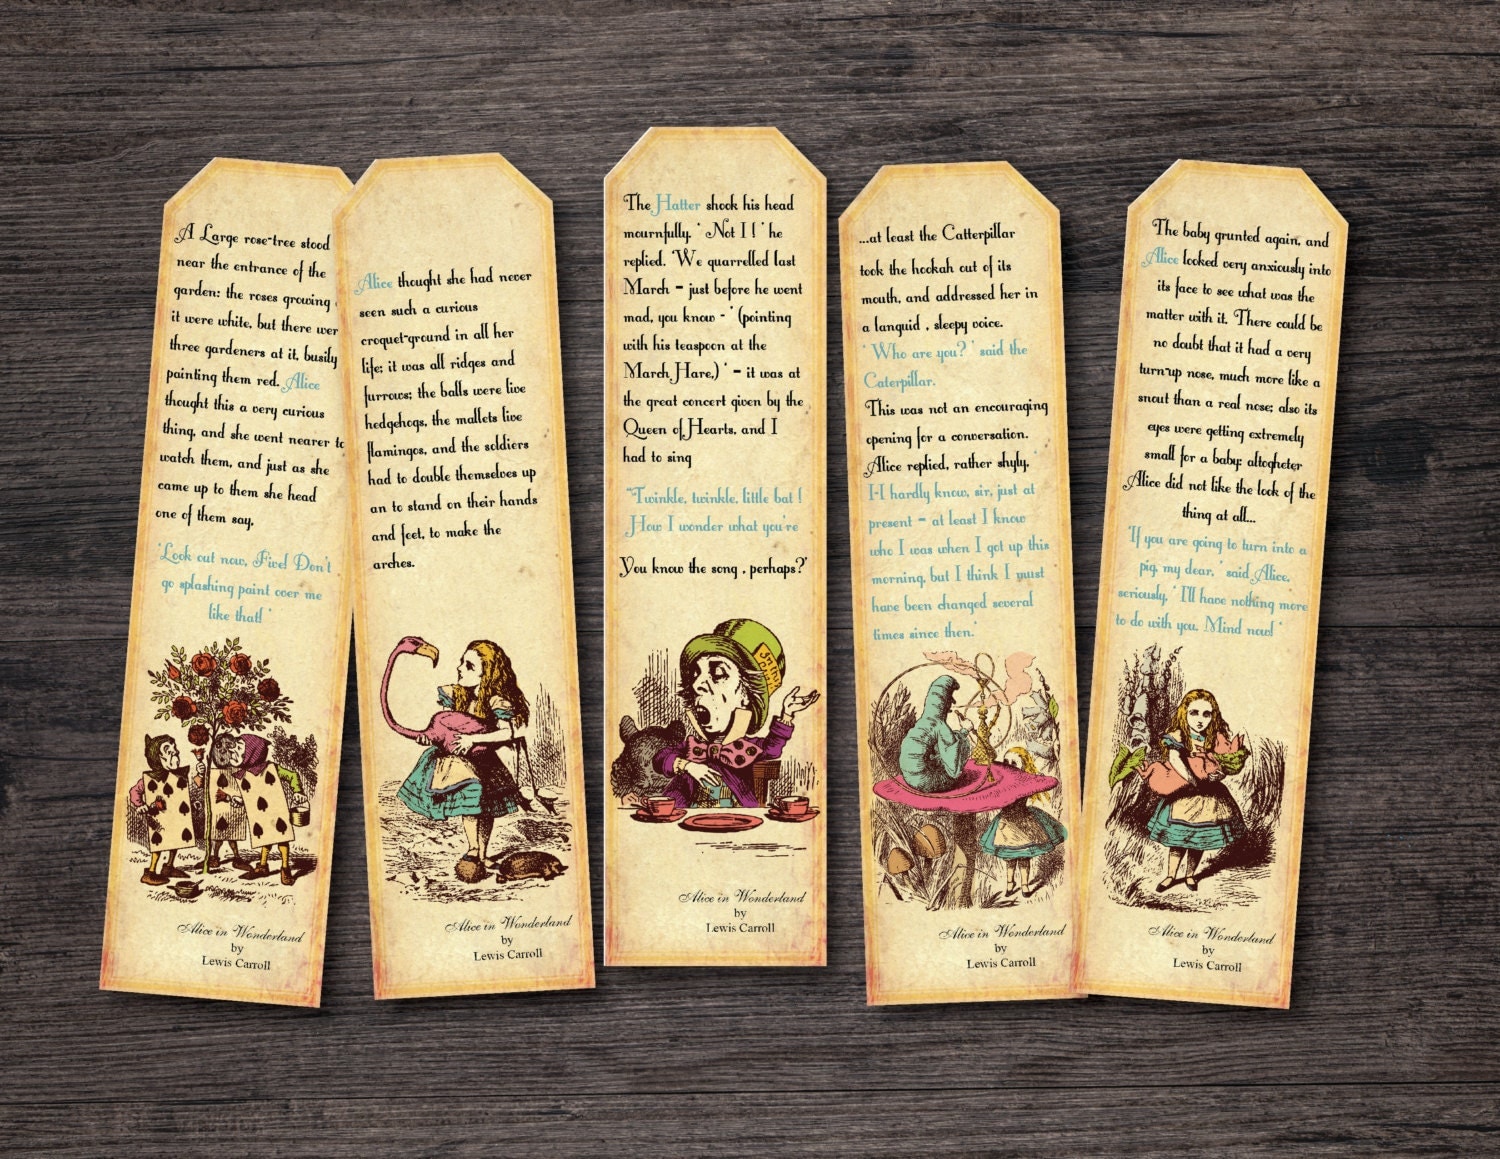 A Large rose-tree stood
near the entrance of the
garden: the roses growing
it were white, but there wer
three gardeners at it, busily
painting them red. Alice
thought this a very curious
thing, and she went nearer to
watch them, and just as she
came up to them she head
one of them say,
'Look out now, Five! Don't
go splashing paint over me
like that! '
Alice in Wonderland
by
Lewis Carroll
Alice thought she had never
seen such a curious
croquet-ground in all her
life; it was all ridges and
furrows; the balls were live
hedgehogs, the mallets live
flamingos, and the soldiers
had to double themselves up
an to stand on their hands
and feet, to make the
arches.
Alice in Wonderland
by
Lewis Carroll
The Hatter shook his head
mournfully. ' Not I ! ' he
replied. 'We quarrelled last
March - just before he went
mad, you know - ' (pointing
with his teaspoon at the
March Hare,) ' - it was at
the great concert given by the
Queen of Hearts, and I
had to sing
"Twinkle, twinkle, little bat !
How I wonder what you're
You know the song , perhaps?'
In this
Alice in Wonderland
by
Lewis Carroll
...at least the Catterpillar
took the hookah out of its
mouth, and addressed her in
a languid , sleepy voice.
' Who are you? ' said the
Caterpillar.
This was not an encouraging
opening for a conversation.
Alice replied, rather shyly,
'I-I hardly know, sir, just at
present - at least I know
who I was when I got up this
morning, but I think I must
have been changed several
times since then.'
Alice in Wonderland
by
Lewis Carroll
The baby grunted again, and
Alice looked very anxiously into
its face to see what was the
matter with it. There could be
no doubt that it had a very
turn-up nose, much more like a
snout than a real nose; also its
eyes were getting extremely
small for a baby: altogheter
Alice did not like the look of the
thing at all...
'If you are going to turn into a
pig, my dear, ' said Alice,
seriously, ' I'll have nothing more
to do with you. Mind now! '
Alice in Wonderland
by
Lewis Carroll